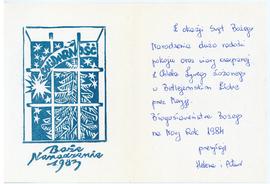 Boże
Narodzenie
1983
Z okazji Świąt Bożego
Narodzenia dużo radości
pokoju oraz wiary czerpanej
z Chleba Żywego złożonego
w Betlejemskim Żłobie
przez Maryję.
Błogosławieństwa Bożego
na Nowy Rok 1984
przesyłają
Helena i